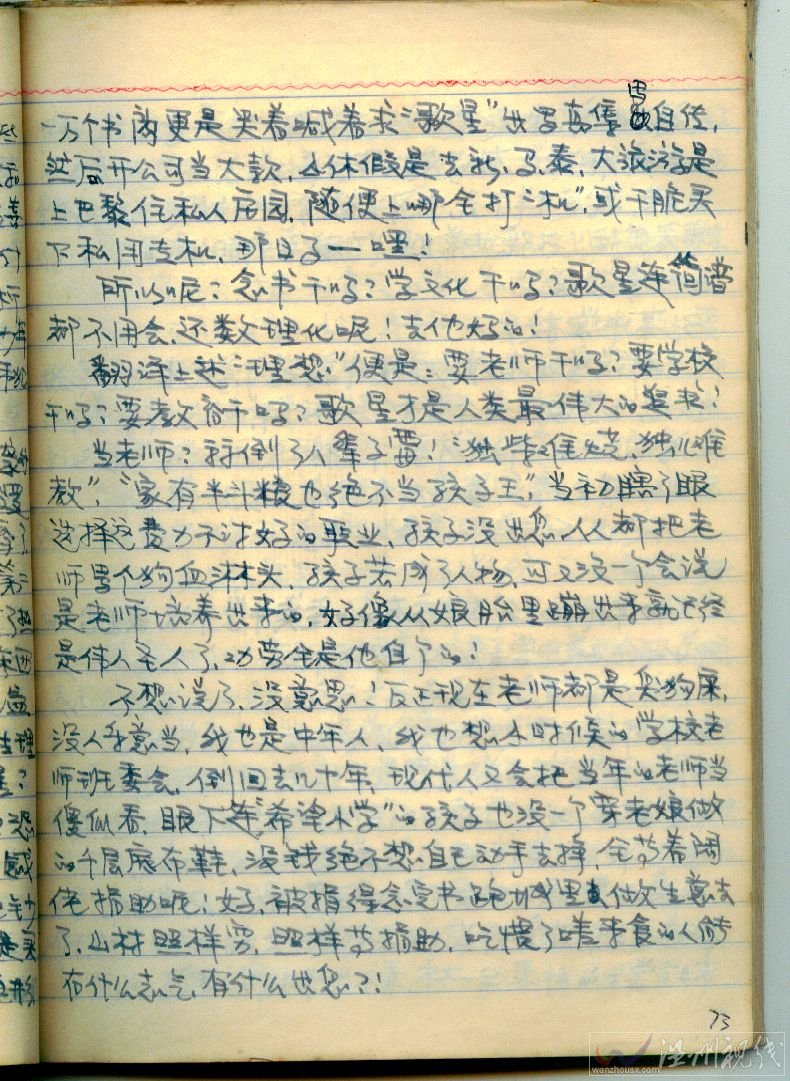 一万个书商更是哭着喊着求“歌星”出写真集、出自传,
然后开公司当大款,小休假是去新、马、泰,大旅游是
上巴黎住私人庄园,随便上哪全打“机”,或干脆买
下私用专机,那日子一嘿!
所以呢?念书干吗?学文化干吗?歌星连简谱
都不用会,还数理化呢!去他妈的!
翻译上述“理想”便是:要老师干吗?要学校
干吗?要教育干吗?歌星才是人类最伟大的追求!
当老师?好倒了八辈子霉!“独柴难烧,独儿难
教”,“家有半斗粮也绝不当孩子王”,当初瞎了眼
选择这费力不讨好的职业,孩子没出息,人人都把老
师骂个狗血淋头,孩子若成了人物,可又没一个会说
是老师培养出来的,好像从娘胎里蹦出来就已经
是伟人圣人了,功劳全是他自个的!
不想说了,没意思!反正现在老师都是臭狗屎,
没人愿意当,我也是中年人,我也想小时候的学校老
师班委会,倒回去几十年,现代人又会把当年的老师当
傻似看,眼下连“希望小学”的孩子也没一个穿老娘做
的千层底布鞋,没钱绝不想自己动手去挣,全等着阔
佬捐助呢!好,被捐得念完书跑城里去做生意去
了,山村照样穷,照样等捐助,吃惯了嗟来食的人能
有什么志气,有什么出息?!
73
温州视线
wenzhousx.com